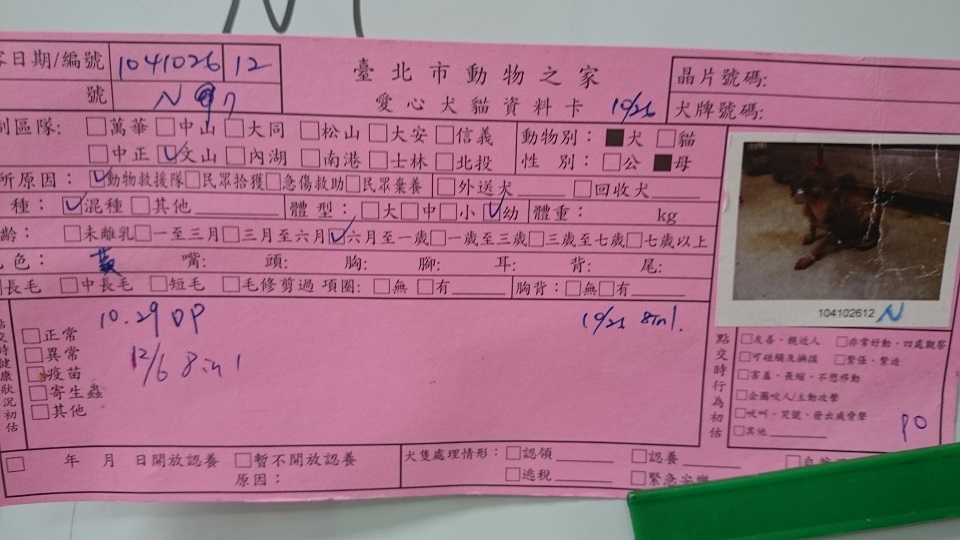 容日期/編號 1041026 12
臺北市動物之家
晶片號碼:
號 N 7
愛心犬貓資料卡 10/26
犬牌號碼:
制區隊: □萬華 □中山 □大同 □松山 □大安 □信義 動物別: ■犬 □貓
□中正 ☑文山 □內湖 □南港 □士林 □北投 性 別: □公 ■母
所原因: ☑動物救援隊 □民眾拾獲 □急傷救助 □民眾棄養 □外送犬 □回收犬
種: ☑混種 □其他 體型: □大 □中 □小 ☑幼 體重: kg
齡: □未離乳 □一至三月 □三月至六月 ☑六月至一歲 □一歲至三歲 □三歲至七歲 □七歲以上
色: 黃 嘴: 頭: 胸: 腳: 耳: 背: 尾:
長毛 □中長毛 □短毛 □毛修剪過 項圈: □無 □有 胸背: □無 □有
104102612 N
點交時健康狀況初估
10.29 DP
10/26 8in1.
□正常
□異常
12/6 8in1
□疫苗
□寄生蟲
□其他
點交時行為初估
□友善、親近人 □非常好動、四處觀察
□可碰觸及撫摸 □緊張、緊迫
□害羞、畏縮、不想移動
□企圖咬人/主動攻擊
□吠叫、哭號、發出威脅聲
□其他
□ 年 月 日開放認養 □暫不開放認養
原因:
犬隻處理情形: □認領 □認養
□逃脫 □緊急安樂